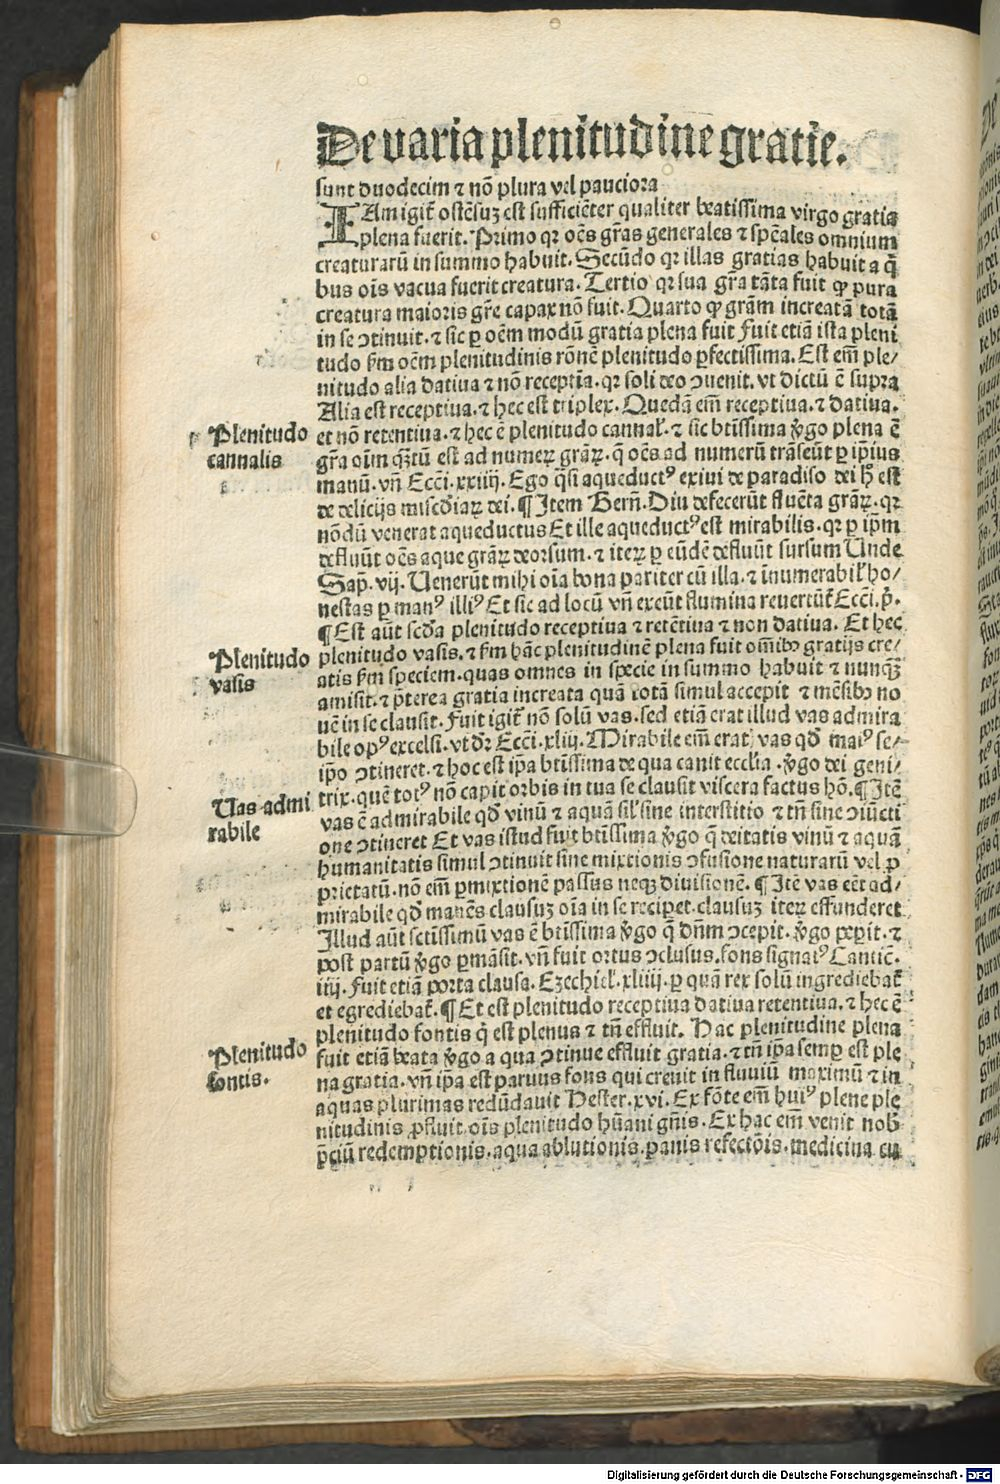 De varia plenitudine gratie.
sunt duodecim ⁊ nō plura vel pauciora
IAm igit̄ ostēsuʒ est sufficiēter qualiter beatissima virgo gratia
plena fuerit. Primo qꝛ oēs gr̄as generales ⁊ sp̄cales omnium
creaturarū in summo habuit. Secūdo qꝛ illas gratias habuit a q̄
bus oīs vacua fuerit creatura. Tertio qꝛ sua gr̄a tāta fuit ꝙ pura
creatura maioris gr̄e capax nō fuit. Quarto ꝙ gr̄am increatā totā
in se ↄtinuit. ⁊ sic ꝑ oēm modū gratia plena fuit Fuit etiā ista pleni
tudo ẜm oēm plenitudinis rōnē plenitudo ꝑfectissima. Est em̄ ple/
nitudo alia datiua ⁊ nō receptīa. qꝛ soli deo ↄuenit. vt dictū ē supra
Alia est receptiua. ⁊ hec est triplex. Quedā em̄ receptiua. ⁊ datiua.
Plenitudo
cannalis
et nō retentiua. ⁊ hec ē plenitudo cannal̄. ⁊ sic btīssima v̄go plena ē
gr̄a oīm qʒtū est ad numeꝝ gr̄aꝝ. q̄ oēs ad numerū trāseūt ꝑ ip̄ius
manū. vn̄ Ecci. xxiiij. Ego q̄si aqueductꝰ exiui de paradiso dei h̄ est
de delicijs misc̄diaꝝ dei. ¶ Item Bern̄. Diu defecerūt fluēta gr̄aꝝ. qꝛ
nōdū venerat aqueductus Et ille aqueductꝰ est mirabilis. qꝛ ꝑ ip̄m
defluūt oēs aque gr̄aꝝ deorsum. ⁊ iteꝝ ꝑ eūdē defluūt sursum Unde
Sap̄. vij. Uenerūt mihi oīa bona pariter cū illa. ⁊ īnumerabil̄ ho/
nestas ꝑ manꝰ illiꝰ Et sic ad locū vn̄ exeūt flumina reuertūt̄ Ecci. p̄.
¶ Est aūt scd̄a plenitudo receptiua ⁊ retētiua ⁊ non datiua. Et hec
Plenitudo
vasis
plenitudo vasis. ⁊ ẜm hāc plenitudinē plena fuit om̄ibꝫ gratijs cre/
atis ẜm speciem. quas omnes in specie in summo habuit ⁊ nunqʒ
amisit. ⁊ p̄terea gratia increata quā totā simul accepit ⁊ mēsibꝫ no
uē in se clausit. Fuit igit̄ nō solū vas. sed etiā erat illud vas admira
bile opꝰ excelsi. vt dr̄ Ecci. xliij. Mirabile em̄ erat vas qd̄ maiꝰ se-
ip̄o ↄtineret. ⁊ hoc est ip̄a btīssima de qua canit ecclīa. v̄go dei geni/
Uas admi
rabile
trix. quē totꝰ nō capit orbis in tua se clausit viscera factus hō. ¶ Itē
vas ē admirabile qd̄ vinū ⁊ aquā sil̄ sine interstitio ⁊ tn̄ sine ↄiūcti
one ↄtineret Et vas istud fuit btīssima v̄go q̄ deitatis vinū ⁊ aquā
humanitatis simul ↄtinuit sine mixtionis ↄfusione naturarū vel ꝓ
prietatū. nō em̄ ꝑmixtionē passus neqʒ diuisionē. ¶ Itē vas eēt ad/
mirabile qd̄ manēs clausuʒ oīa in se recip̄et. clausuʒ iteꝝ effunderet
Illud aūt sctīssimū vas ē btīssima v̄go q̄ dn̄m ↄcepit. v̄go peꝑit. ⁊
post partū v̄go ꝑmāsit. vn̄ fuit ortus ↄclusus. fons signatꝰ Cantic̄.
iiij. Fuit etiā porta clausa. Ezechiel̄. xliiij. ꝑ quā rex solū ingrediebat̄
et egrediebat̄. ¶ Et est plenitudo receptiua datiua retentiua. ⁊ hec ē
plenitudo fontis q̄ est plenus ⁊ tn̄ effluit. Hac plenitudine plena
Plenitudo
fontis.
fuit etiā beata v̄go a qua ↄtinue effluit gratia. ⁊ tn̄ ip̄a semꝑ est ple
na gratia. vn̄ ip̄a est paruus fons qui creuit in fluuiū maximū ⁊ in
aquas plurimas redūdauit Hester. xvi. Ex fōte em̄ huiꝰ plene ple
nitudinis ꝓfluit oīs plenitudo hūani gn̄is. Ex hac em̄ venit nob̄
p̄ciū redemptionis. aqua ablutionis. panis refectōis. medicina cu
Digitalisierung gefördert durch die Deutsche Forschungsgemeinschaft - DFG